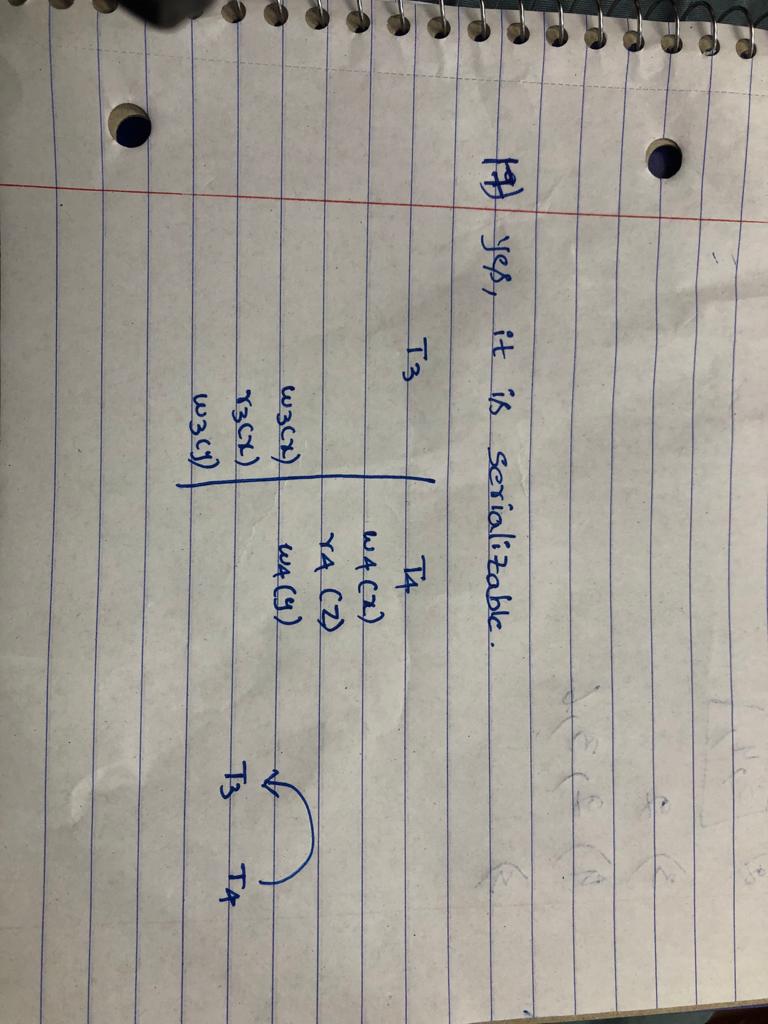 19) yes, it is serializable.
T3 T4
w4(x)
r4 (z)
w3(x) w4(y)
r3(x)
w3(y)
T3 T4